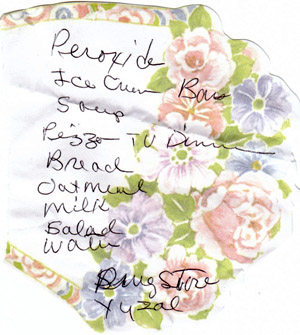 Peroxide
Ice Cream Bars
Soup
Pizza TV Dinner
Bread
Oatmeal
Milk
Salad
Water
Drug Store
Xyzal